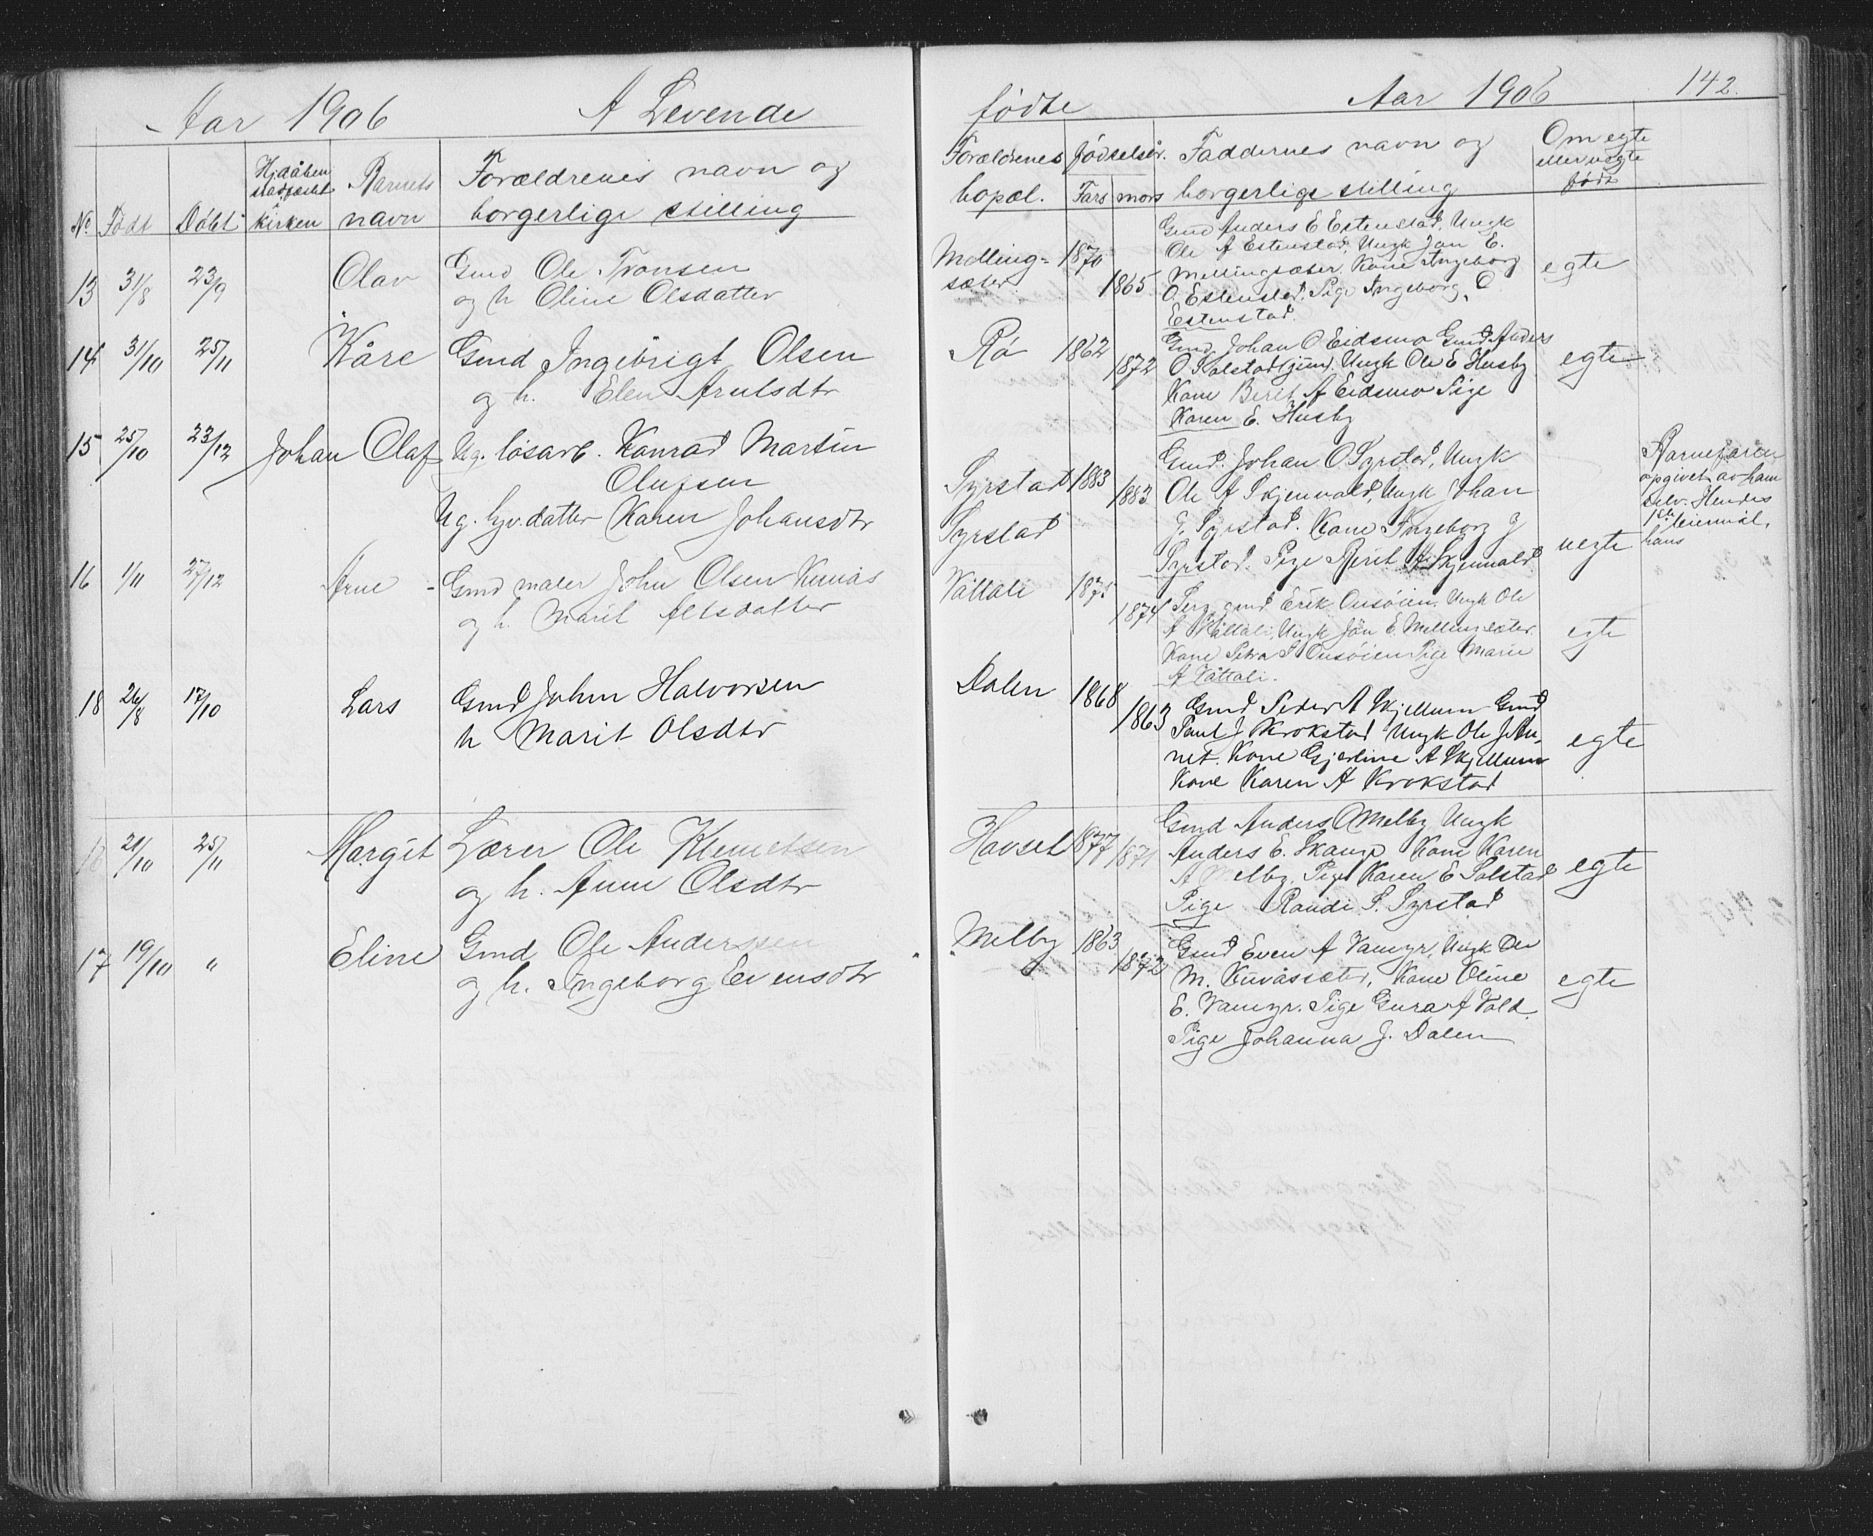 Aar 1906 A Levende
No Født Døbt Hjdåben stadfæstet i kirken Barnets navn Forældrenes navn og borgerlige stilling
13 31/8 23/9 Olav Gmd Ole Tronsen
og h Oline Olsdatter
14 31/10 25/11 Kåre Gmd Ingebrigt Olsen
og h. Elen Arntsdtr
15 25/10 23/12 Johan Olaf Ug. løsarb. Konrad Martin
Olufsen
Ug. gjv.datter Karen Johansdtr
16 1/11 27/12 Arne - Gmd maler John Olsen Kunås
og h. Marit Altsdatter
18 26/8 17/10 Lars Gmd John Halvorsen
h Marit Olsdtr
21/10 25/11 Margit Lærer Ole Klemetsen
og h. Anne Olsdtr
17 19/10 " Eline Gmd Ole Anderssen
og h. Ingeborg Evensdtr
fødte Aar 1906 142.
Forældrenes bopæl. Fødselsår. Fars mors Faddernes navn og borgerlige stilling Om egte eller uegte født
Melling=
sæter 1870 1865 egte
Gmd Anders E Estenstad, Ungk
Ole A Estenstad, Ungk Jon E.
Mellingsæter, Kone Ingeborg
O. Estenstad, Pige Ingeborg O
Estenstad.
Rø 1862 1872 egte
Gmd Johan O Eidsmo Gmd Anders
O Ungk Ole E Husby
Kone Berit A Eidsmo Pige
Karen E. Husby
Syrstad 1883
Syrstad 1883 uegte
Gmd. Johan O. Syrstad, Ungk
Ole A Skjenvald, Ungk Johan
J. Syrstad. Kone Ingeborg J
Syrstad. Pige Berit A Skjenvald
Barnefaren
opgivet av ham
selv. Hendes
1ste leiermål,
hans
Våttali 1875 1874 egte
gmd Erik Onsøien, Ungk Ole
A Våttali, Ungk Jon E. Mellingsæter
Kone Petra S Onsøien Pige Marie
A Våttali.
Dalen 1868 1863 egte
Gmd Peder A Skjellum Gmd
Paul J Krokstad Ungk Ole J
net. Kone Gjertine A Skjellum
Kone Karen A Krokstad
Havset 1877 1871 egte
Gmd Anders O Melby Ungk
Anders E. Kone Karen
A Melby, Pige Karen E Solstad
Pige Randi S. Syrstad
Melby 1863 1872 egte
Gmd Even A Vamyr, Ungk Ole
M. Kuvåssæter, Kone Oline
E. Vamyr. Pige Gura A Vold
Pige Johanna J. Dalen